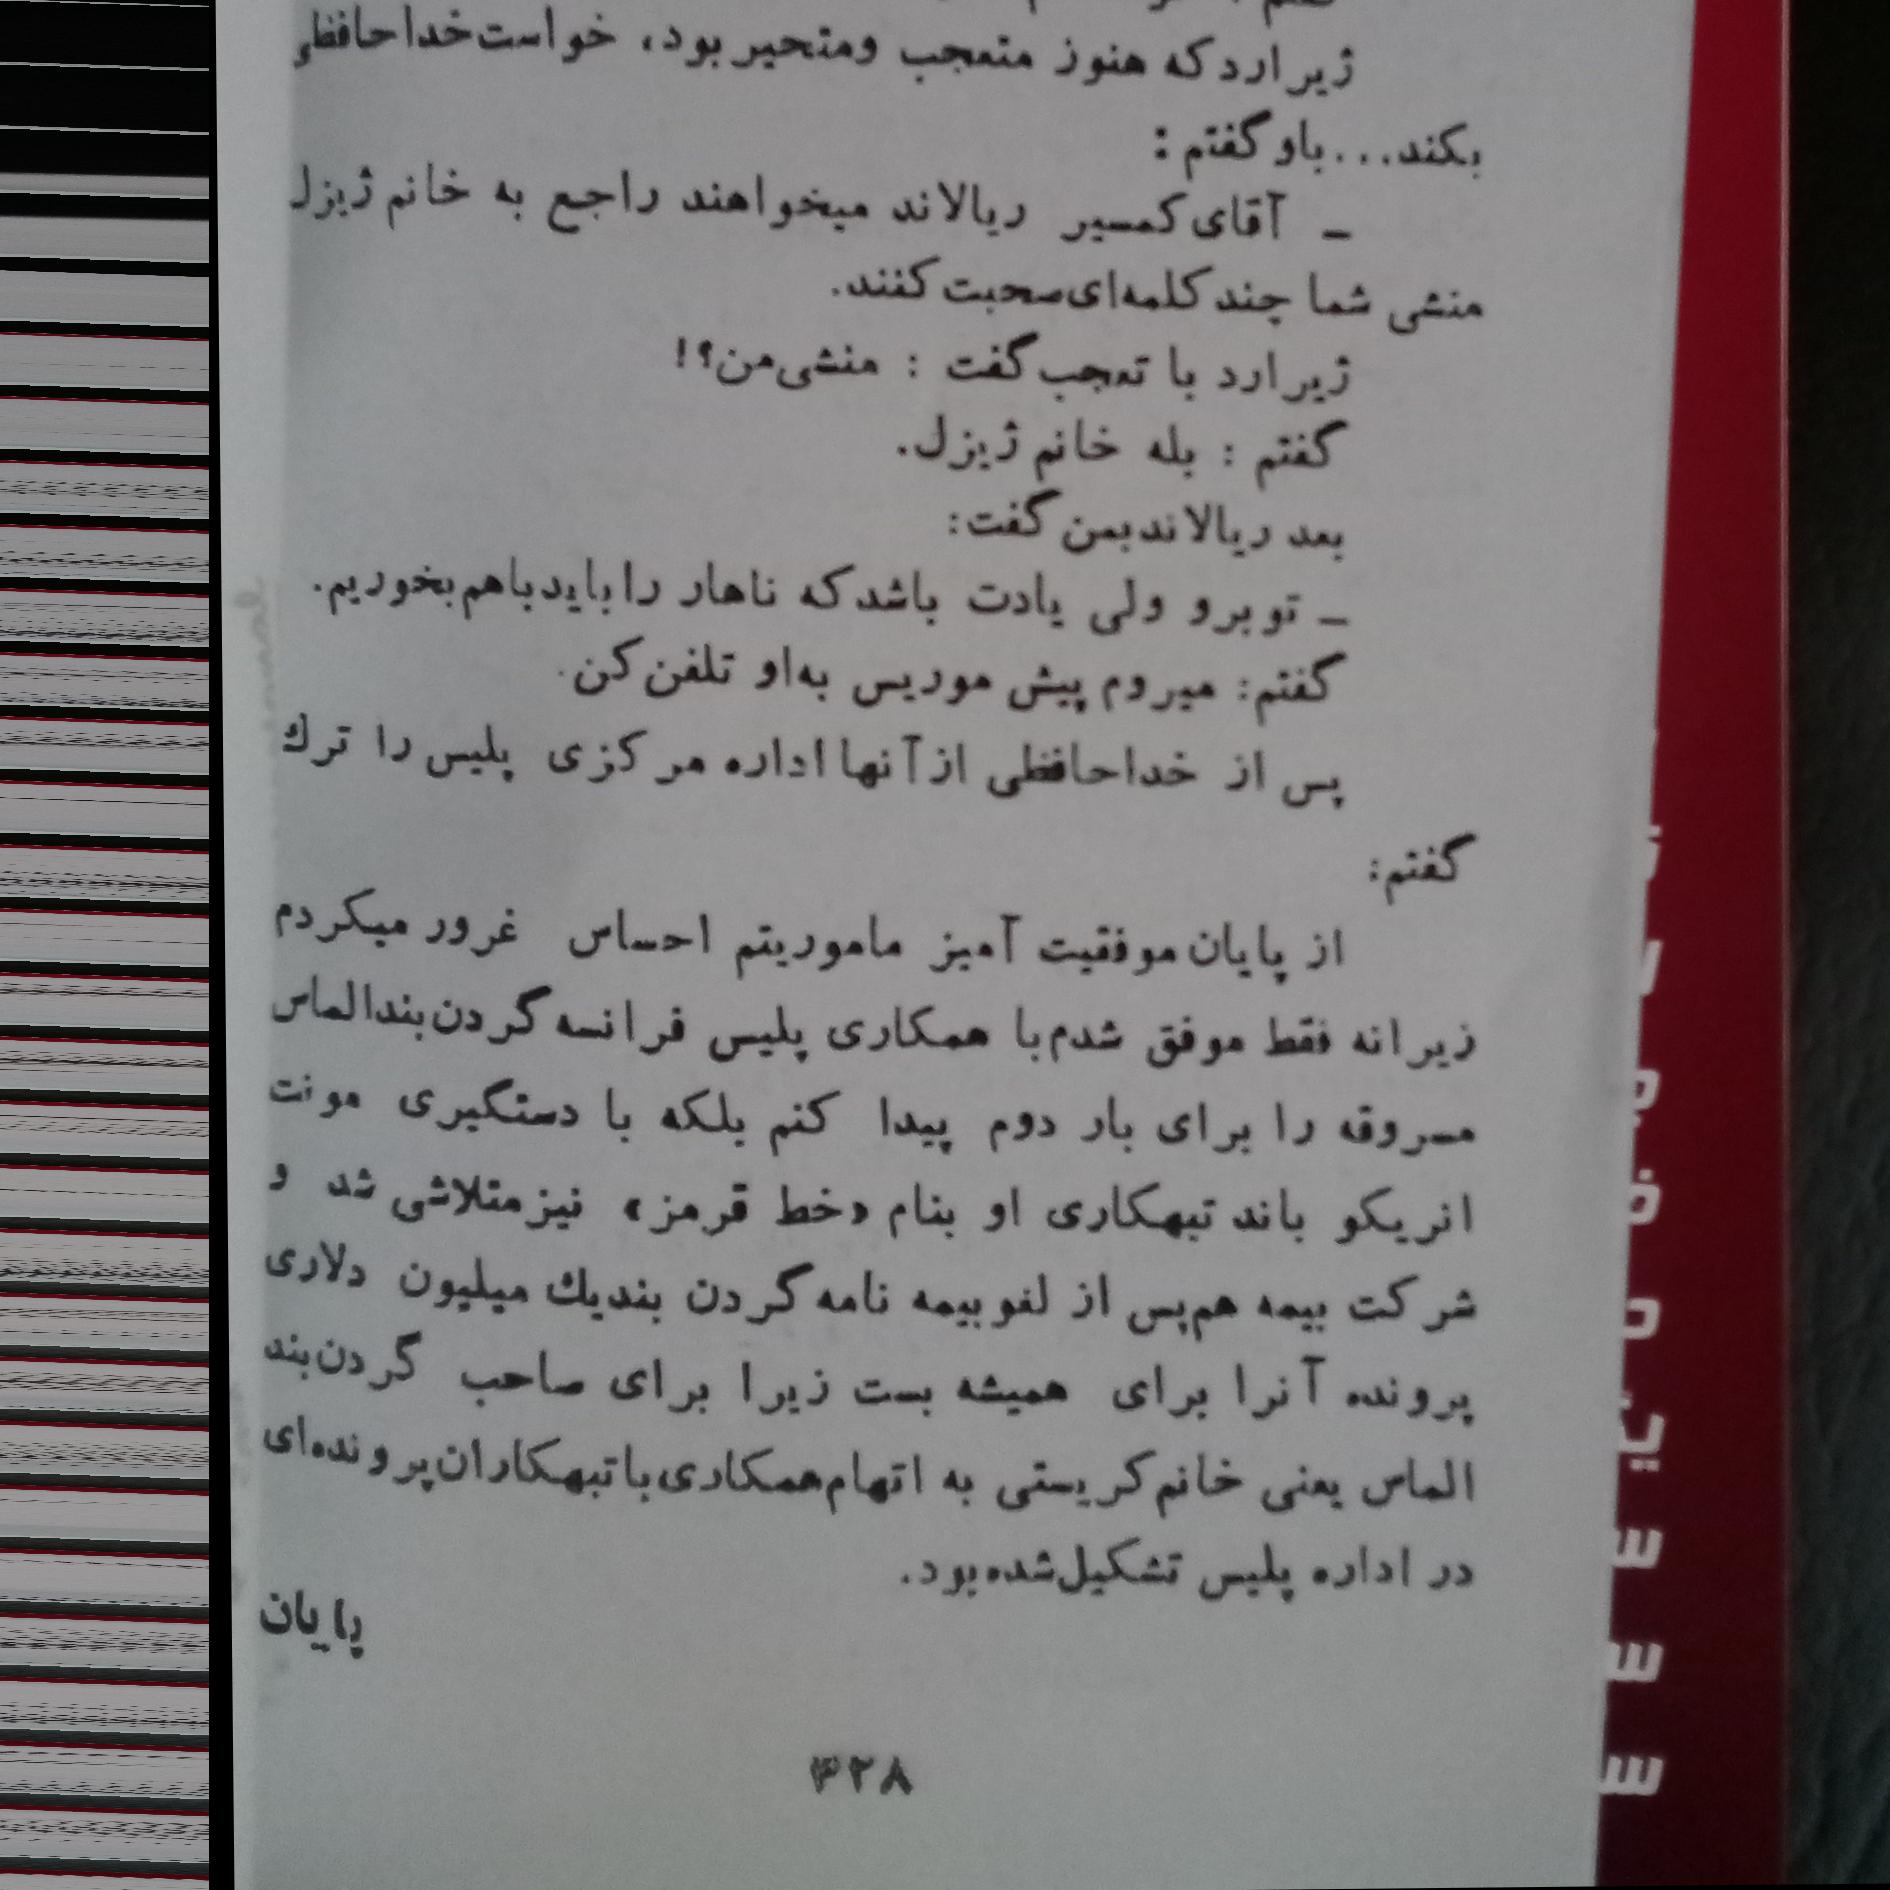 ژیرارد که هنوز متعجب ومتحیر بود، خواست خداحافظی
بکند... باو گفتم :
– آقای کمسیر ریالاند میخواهند راجع به خانم ژیزل
منشی شما چند کلمه‌ای صحبت کنند.
ژیرارد با تعجب گفت : منشی من؟!
گفتم : بله خانم ژیزل.
بعد ریالاند بمن گفت:
– تو برو ولی یادت باشد که ناهار را باید باهم بخوریم.
گفتم: میروم پیش موریس به او تلفن کن.
پس از خداحافظی از آنها اداره مرکزی پلیس را ترك
گفتم:
از پایان موفقیت آمیز ماموریتم احساس غرور میکردم
زیرا نه فقط موفق شدم با همکاری پلیس فرانسه گردن‌بند الماس
مسروقه را برای بار دوم پیدا کنم بلکه با دستگیری مونت
انریکو باند تبهکاری او بنام «خط قرمز» نیز متلاشی شد و
شرکت بیمه هم پس از لغو بیمه نامه گردن بند یك میلیون دلاری
پرونده آنرا برای همیشه بست زیرا برای صاحب گردن‌بند
الماس یعنی خانم کریستی به اتهام همکاری با تبهکاران پرونده‌ای
در اداره پلیس تشکیل شده بود.
پایان